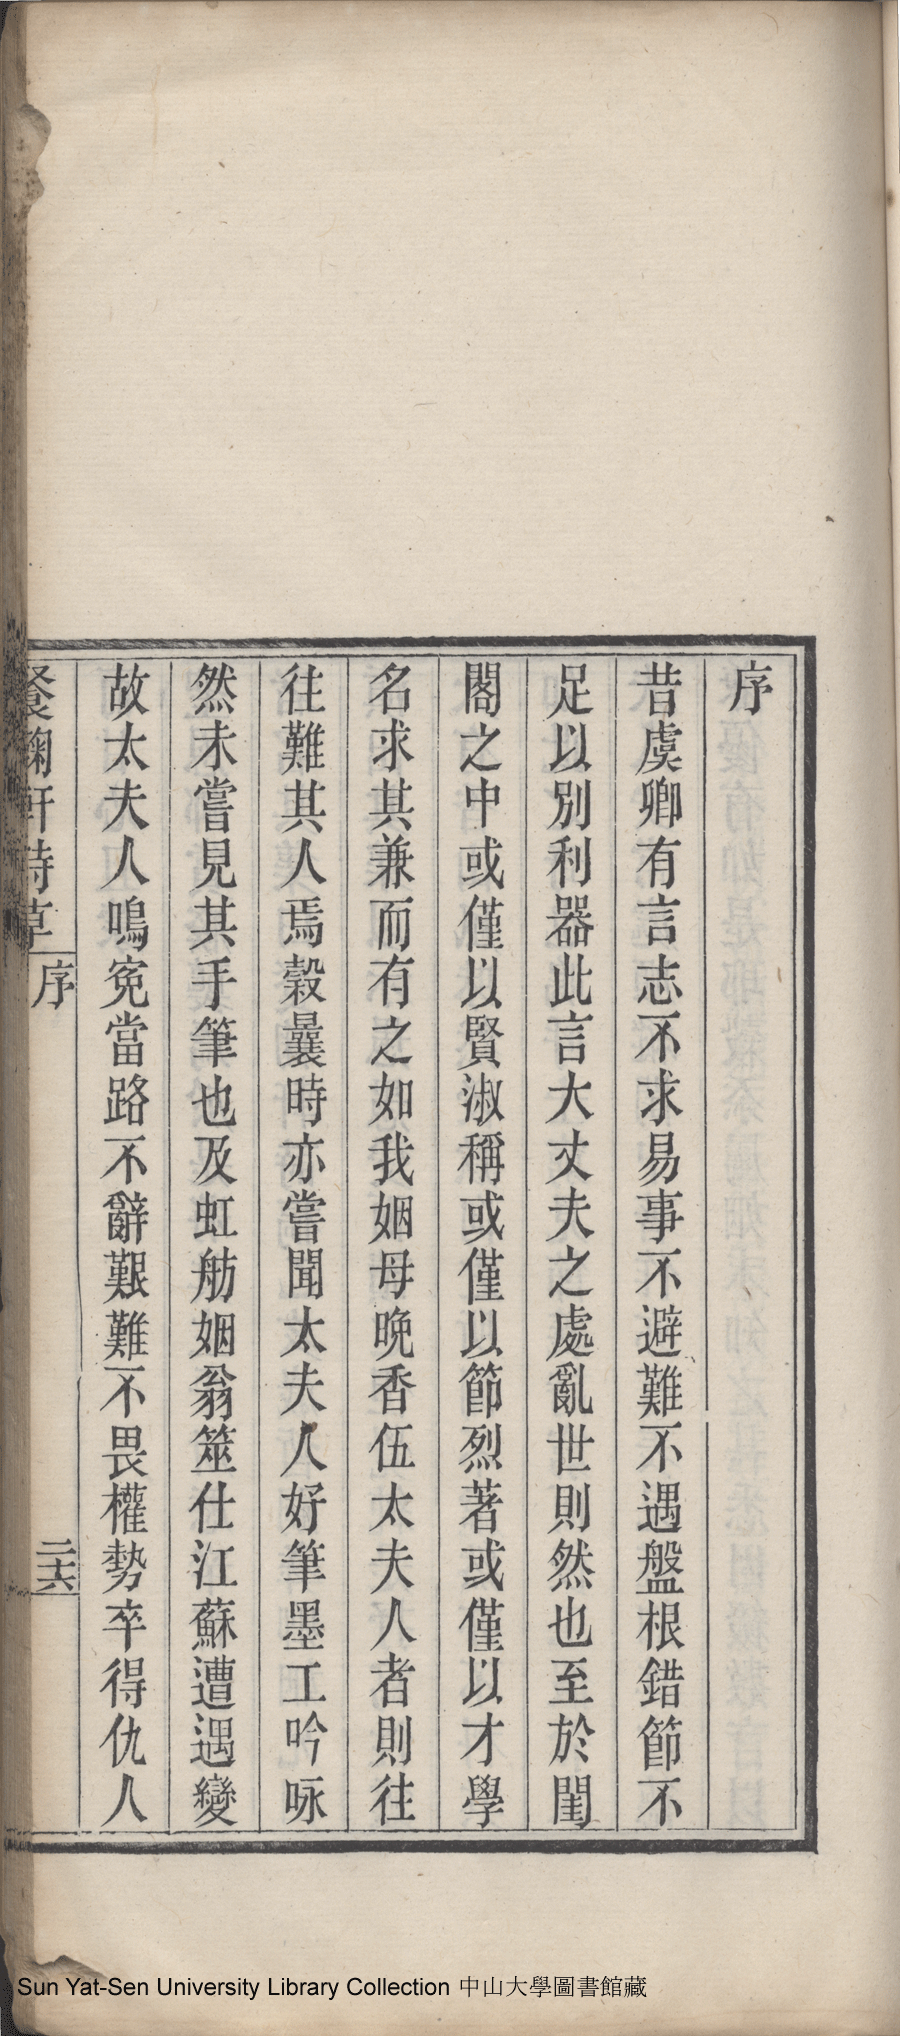 序
昔虞卿有言志不求易事不避難不遇盤根錯節不
足以別利器此言大丈夫之處亂世則然也至於閨
閣之中或僅以賢淑稱或僅以節烈著或僅以才學
名求其兼而有之如我姻母晚香伍太夫人者則往
往難其人焉穀曩時亦嘗聞太夫人好筆墨工吟咏
然未嘗見其手筆也及虹舫姻翁筮仕江蘇遭遇變
故太夫人鳴寃當路不辭艱難不畏權勢卒得仇人
餐菊軒詩草 序 二六
Sun Yat-Sen University Library Collection 中山大學圖書館藏